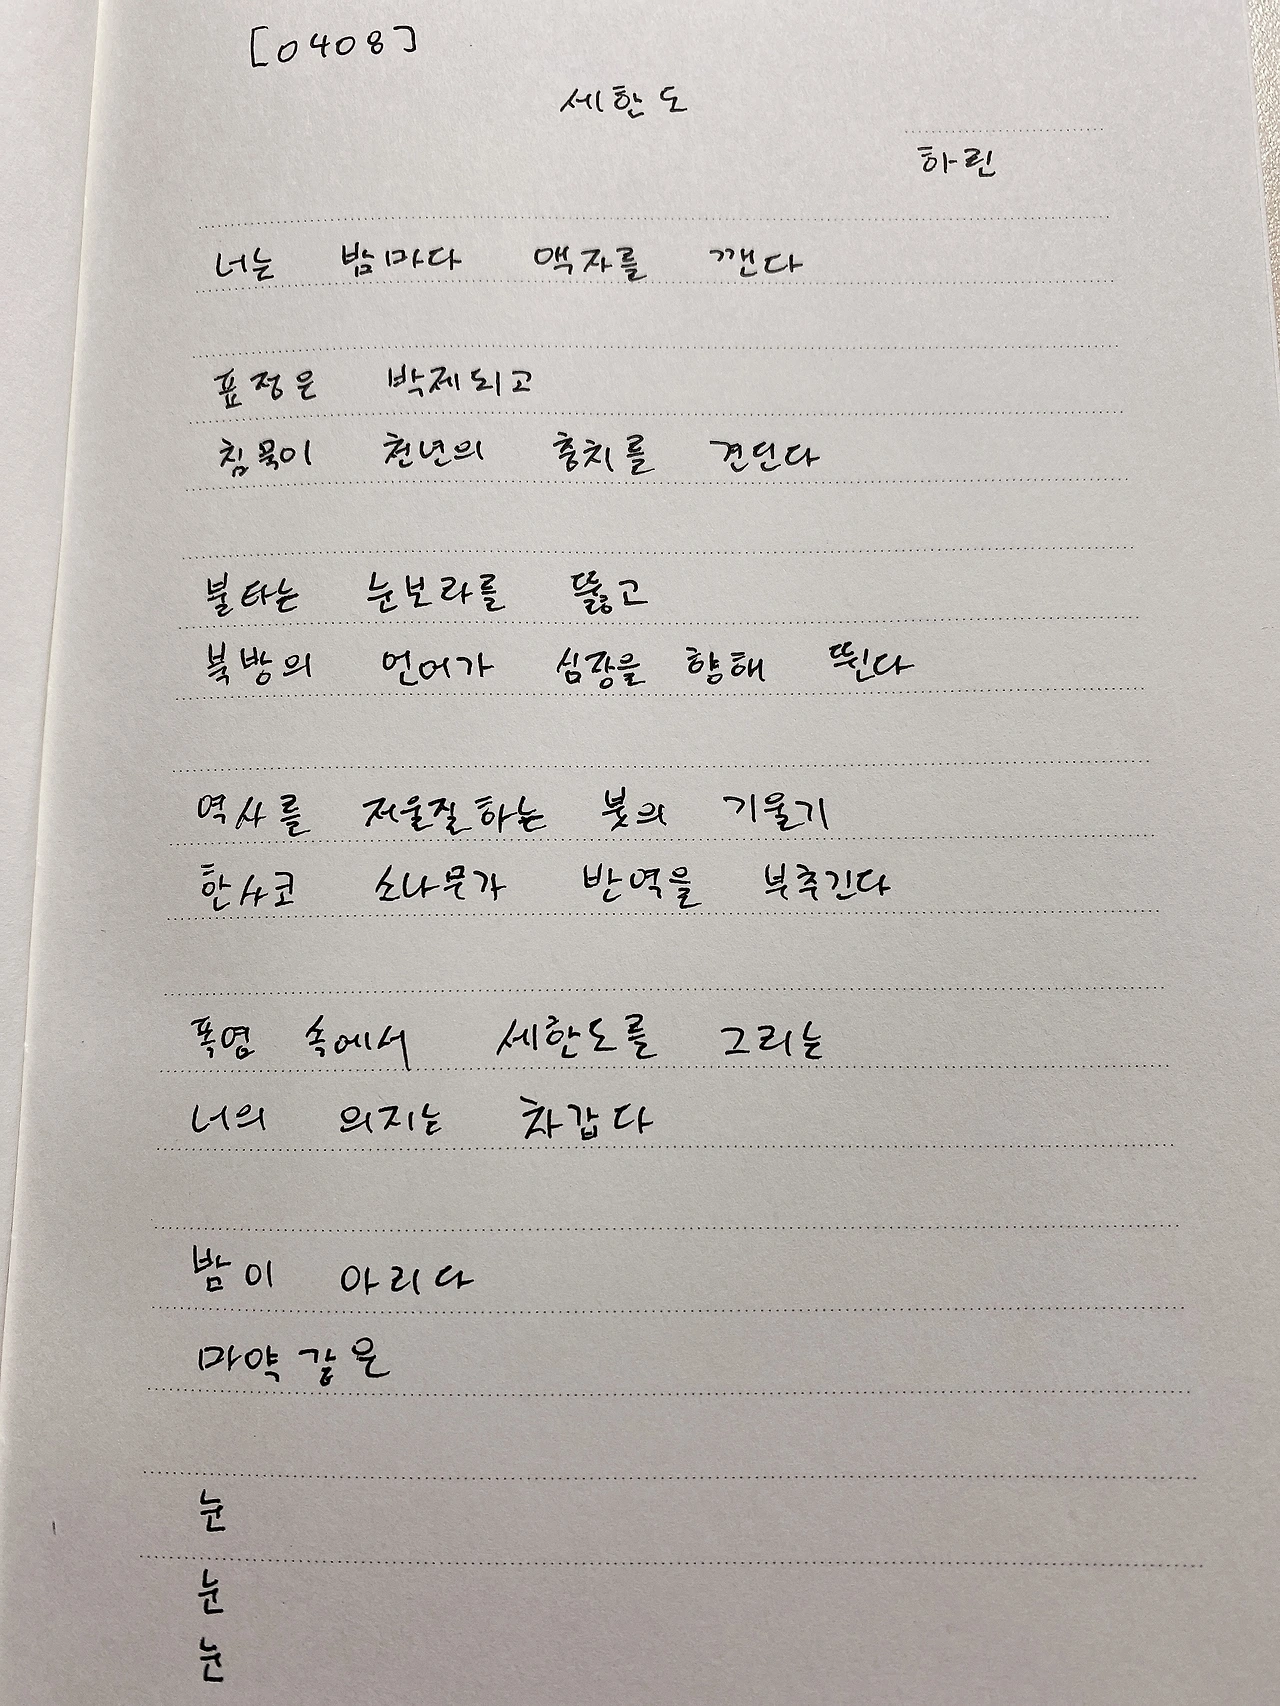 [0408]
세한도
하린
너는 밤마다 액자를 깬다
표정은 박제되고
침묵이 천년의 충치를 견딘다
불타는 눈보라를 뚫고
북방의 언어가 심장을 향해 뛴다
역사를 저울질하는 붓의 기울기
한사코 소나무가 반역을 부추긴다
폭염 속에서 세한도를 그리는
너의 의지는 차갑다
밤이 아리다
마약같은
눈
눈
눈